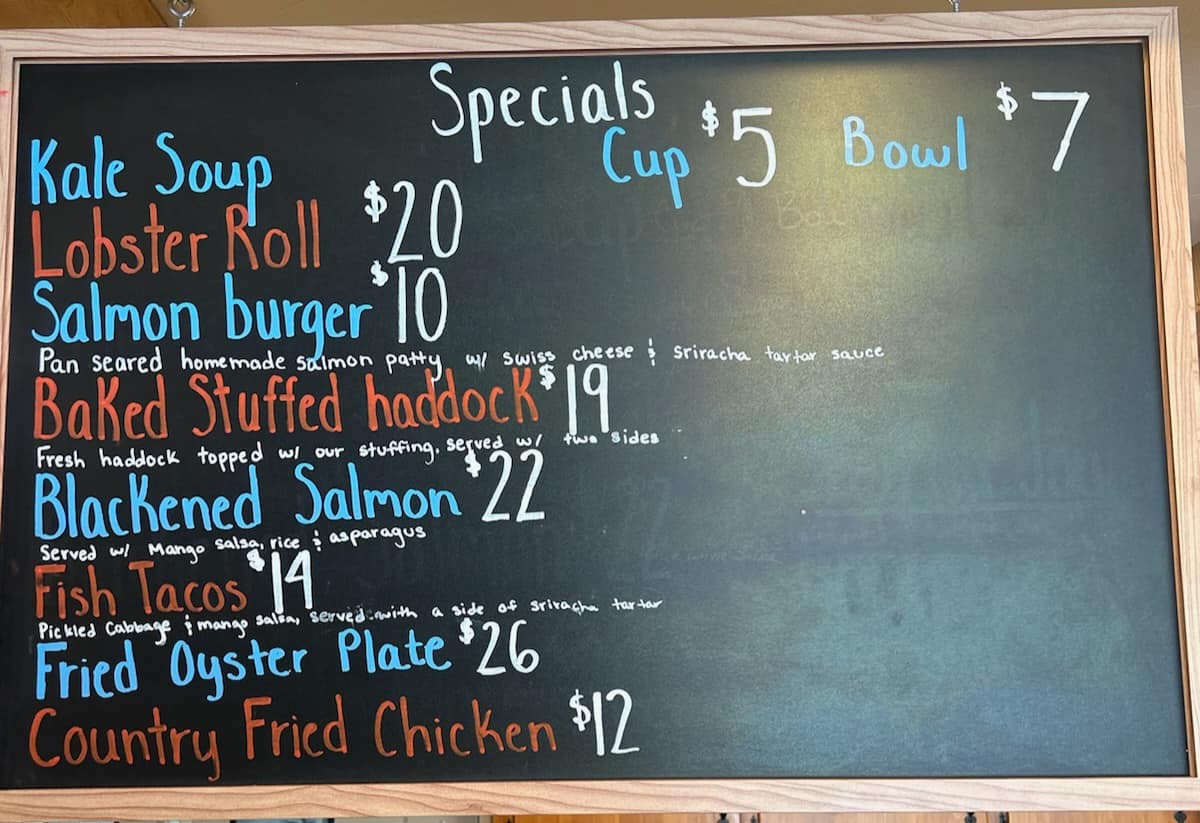 Specials
Kale Soup Cup $5 Bowl $7
Lobster Roll $20
Salmon burger $10
Pan seared homemade salmon patty w/ swiss cheese & sriracha tartar sauce
Baked Stuffed haddock $19
Fresh haddock topped w/ our stuffing, served w/ two sides
Blackened Salmon $22
Served w/ Mango salsa, rice & asparagus
Fish Tacos $14
Pickled Cabbage & mango salsa, served with a side of sriracha tartar
Fried Oyster Plate $26
Country Fried Chicken $12